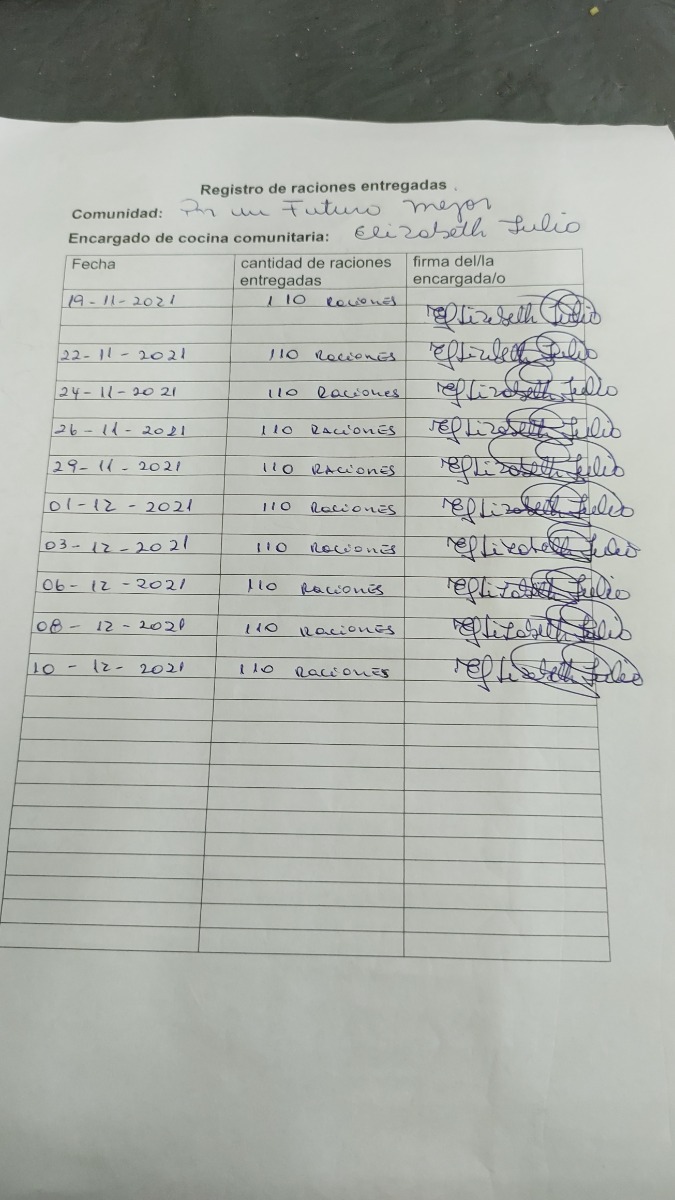 Registro de raciones entregadas .
Comunidad: Por un Futuro mejor
Encargado de cocina comunitaria: Elizabeth Julio
Fecha cantidad de raciones entregadas firma del/la encargada/o
19-11-2021 110 Raciones Elizabeth Julio
22-11-2021 110 Raciones Elizabeth Julio
24-11-2021 110 Raciones Elizabeth Julio
26-11-2021 110 Raciones Elizabeth Julio
29-11-2021 110 Raciones Elizabeth Julio
01-12-2021 110 Raciones Elizabeth Julio
03-12-2021 110 Raciones Elizabeth Julio
06-12-2021 110 Raciones Elizabeth Julio
08-12-2021 110 Raciones Elizabeth Julio
10-12-2021 110 Raciones Elizabeth Julio